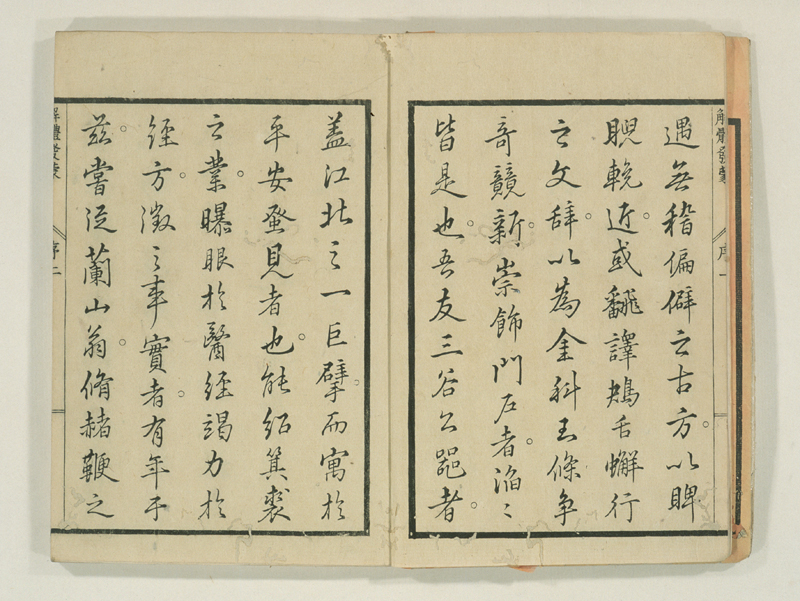 遇無稽偏僻之古方。以睥
睨輓近。或飜譯鴂舌蠏行
之文辞。以為金科玉條争
奇競新。崇飾門户者。滔〻
皆是也。吾友三谷公器者。
解體發蒙
序一
盖江北之一巨擘。而寓於
平安發見者也。能紹箕裘
之業。曝眼於醫經竭力於
經方。徴之事實者。有年于
茲。嘗從蘭山翁。脩赭鞭之
解體發蒙
序二